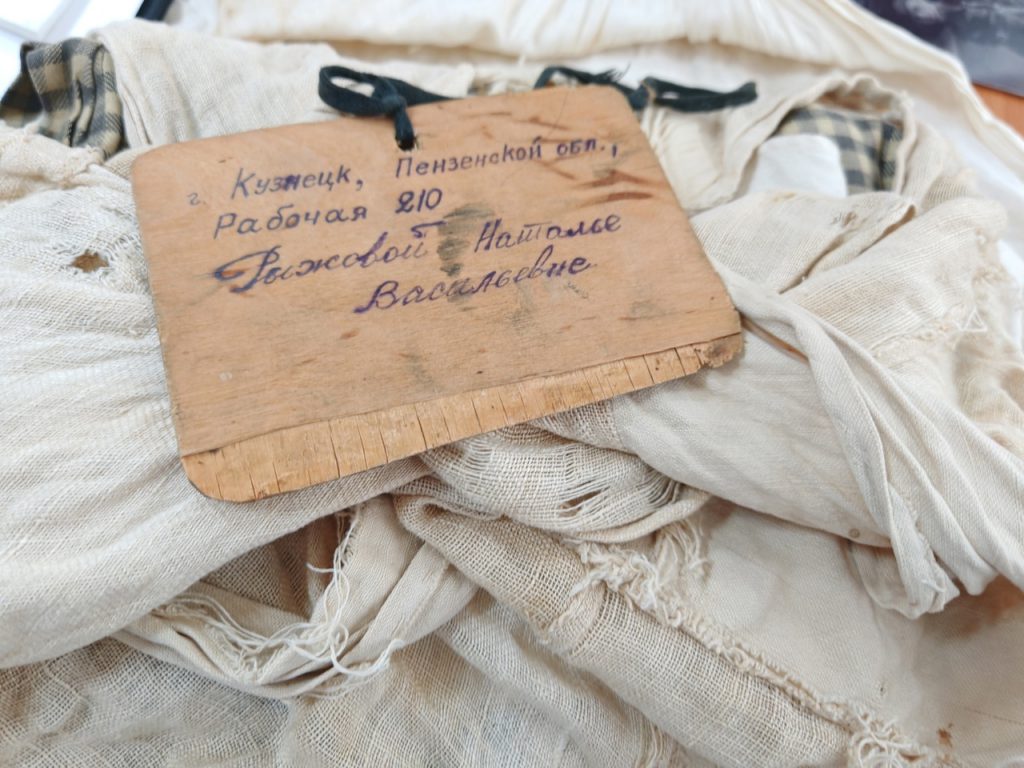 г. Кузнецк, Пензенской обл.,
Рабочая 210
Рыжовой Наталье
Васильевне